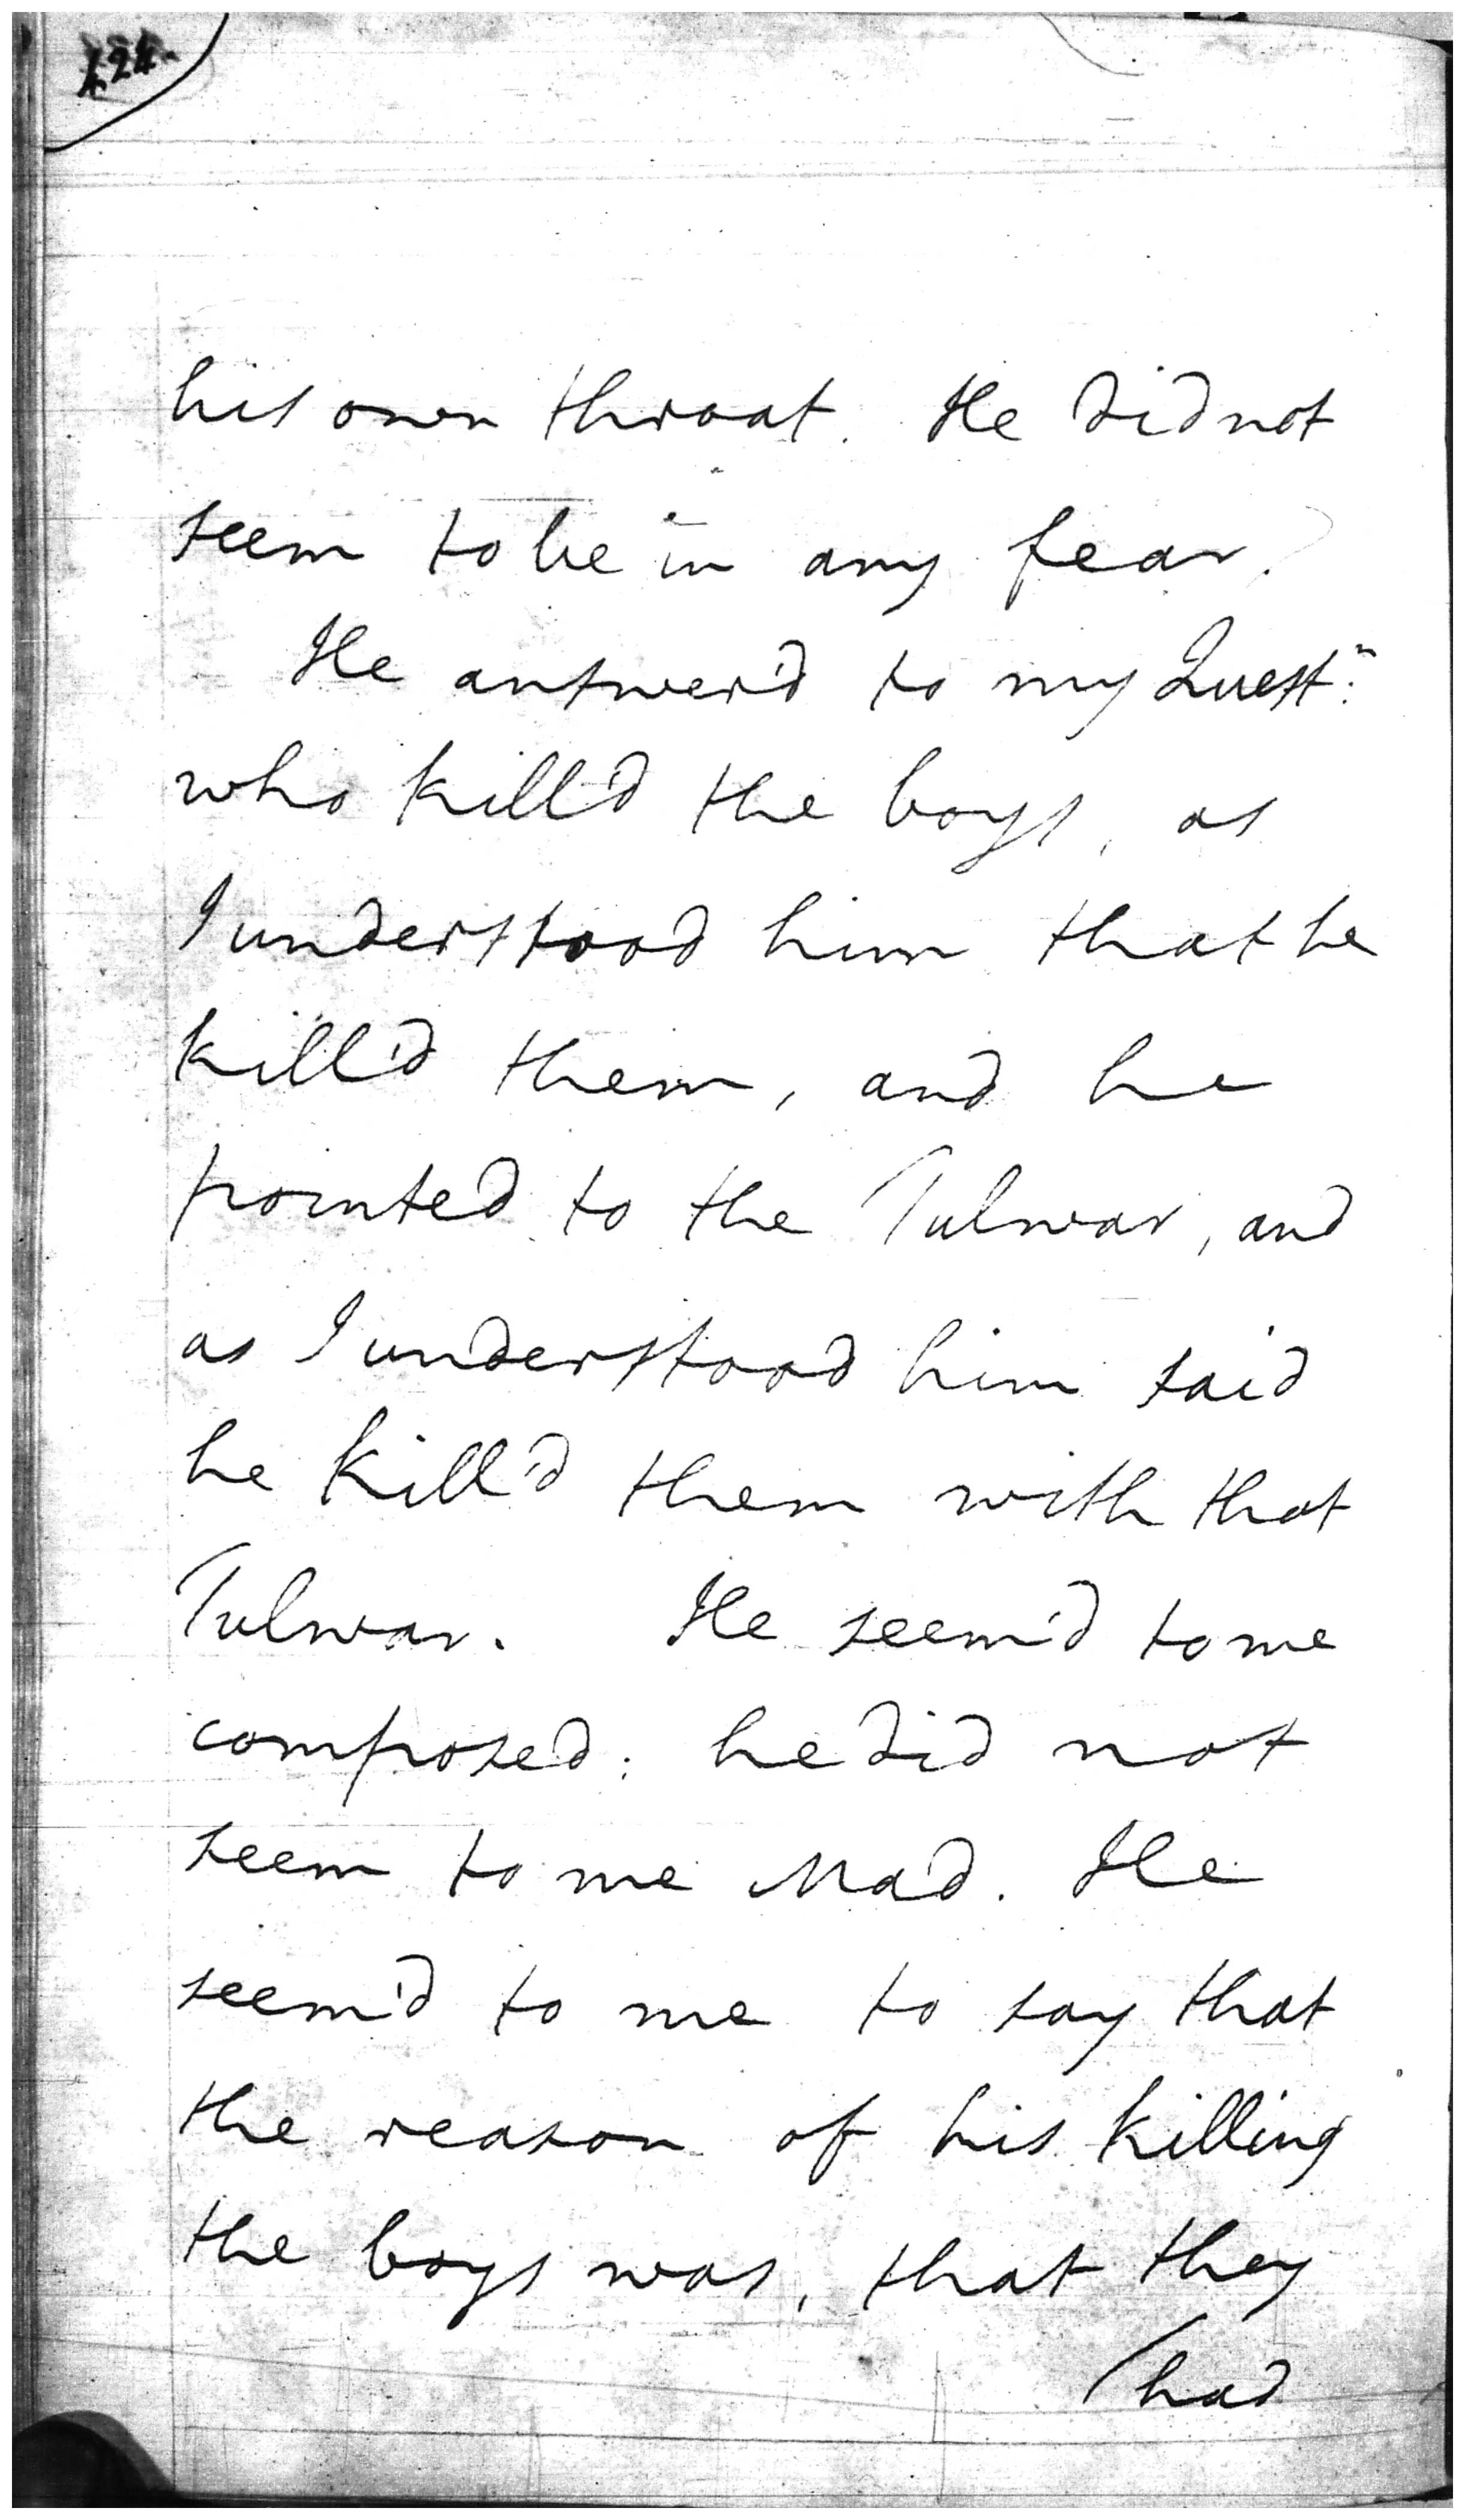 124.
his own throat. He did not
seem to be in any fear.
He answer'd to my Quest:ⁿ
who kill'd the boys, as
I understood him that he
kill'd them, and he
pointed to the Tulwar, and
as I understood him said
he kill'd them with that
Tulwar. He seem'd to me
composed: he did not
seem to me Mad. He
seem'd to me to say that
the reason of his killing
the boys was, that they
had